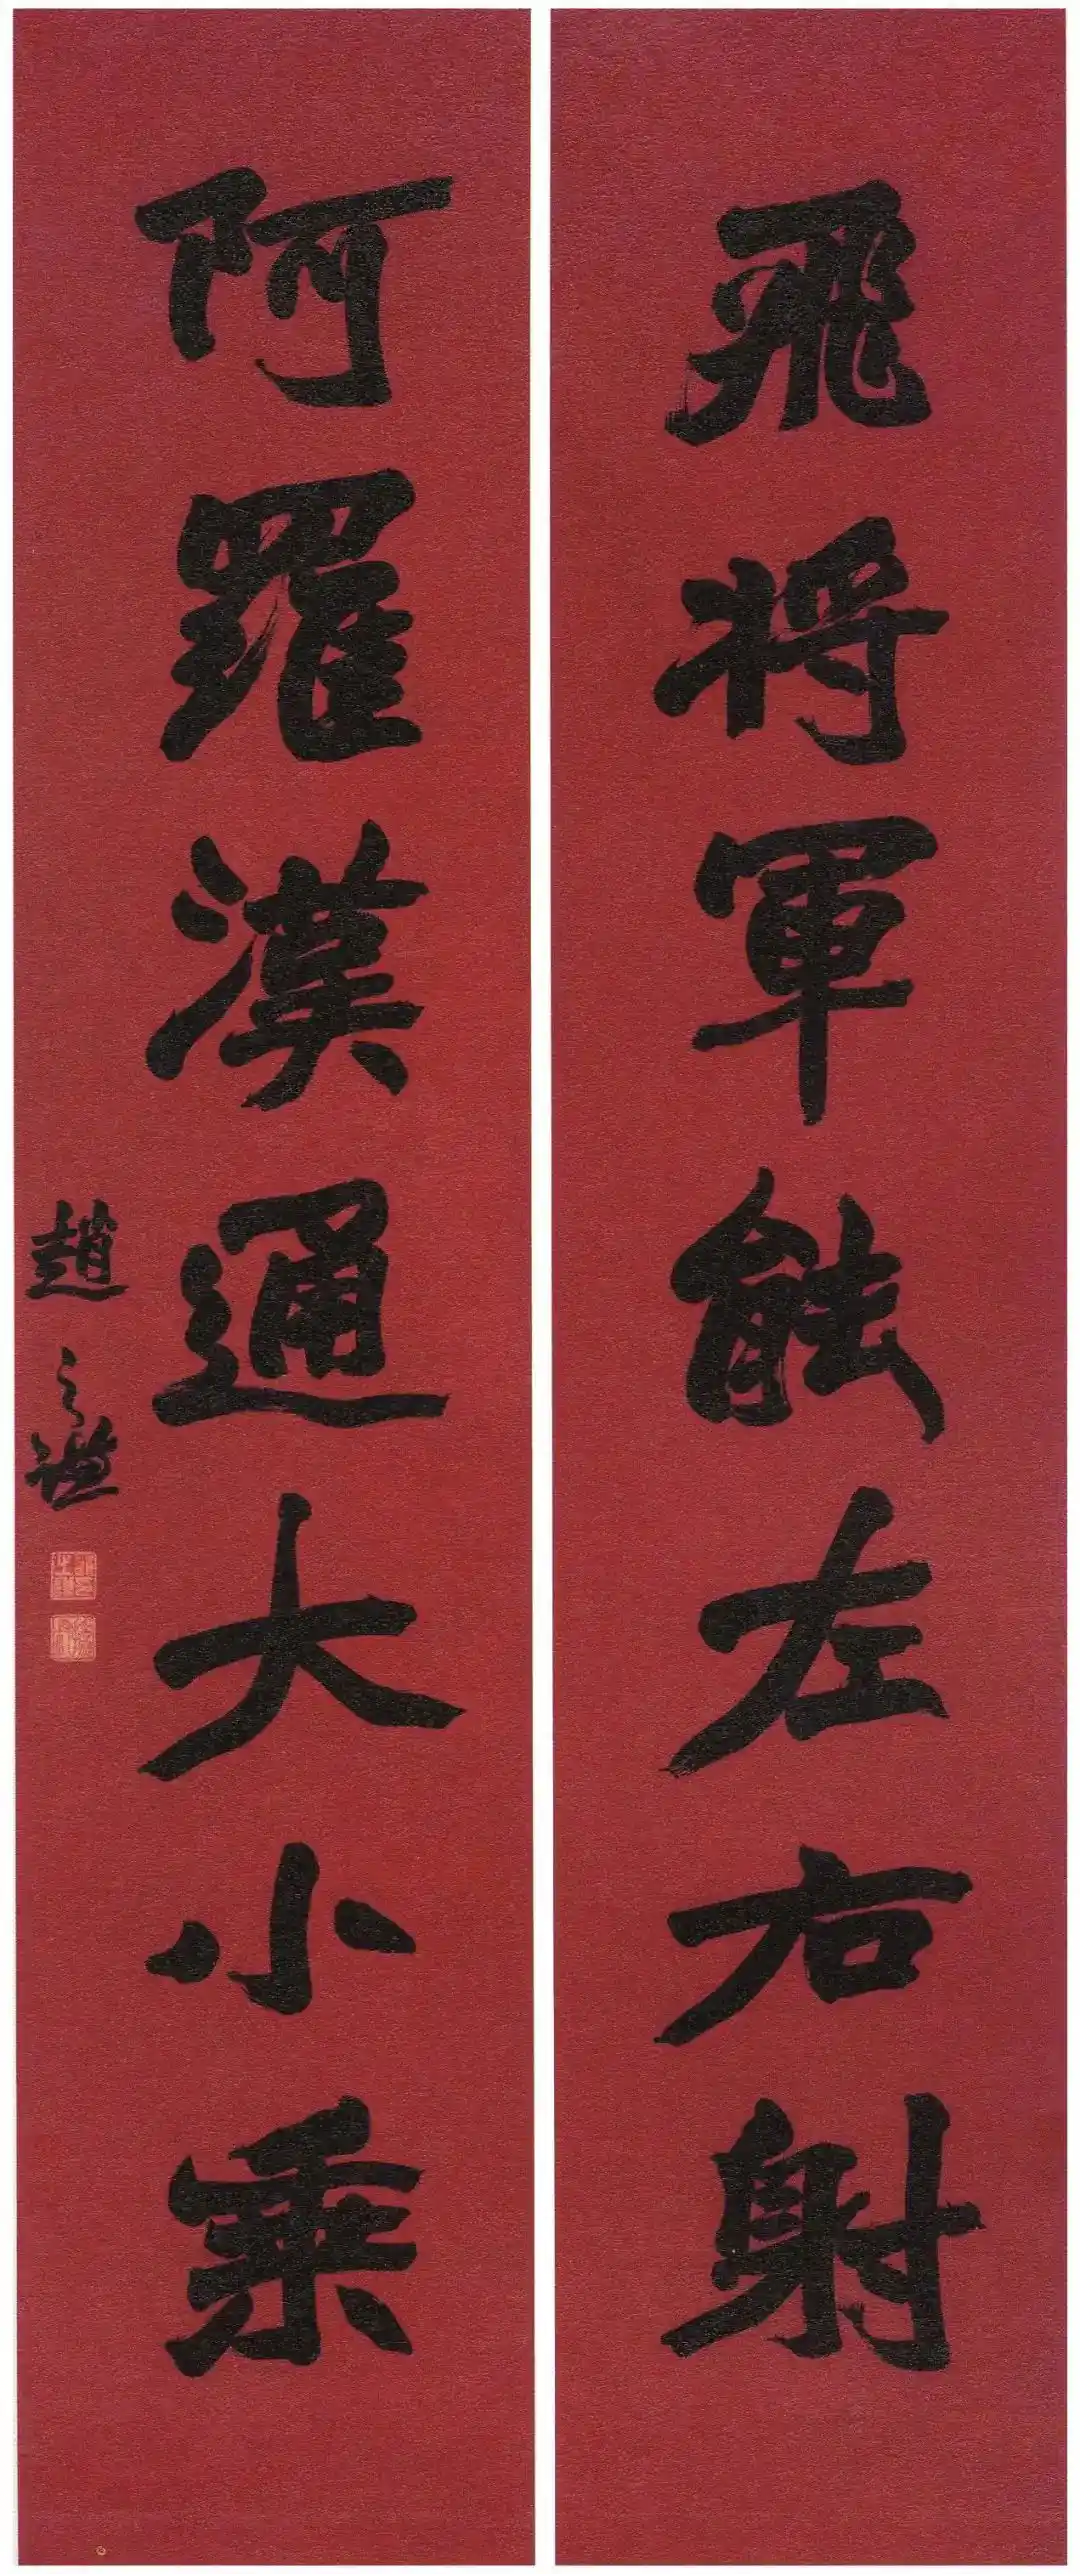 飛將軍能左右射
阿羅漢通大小乘
趙之謙